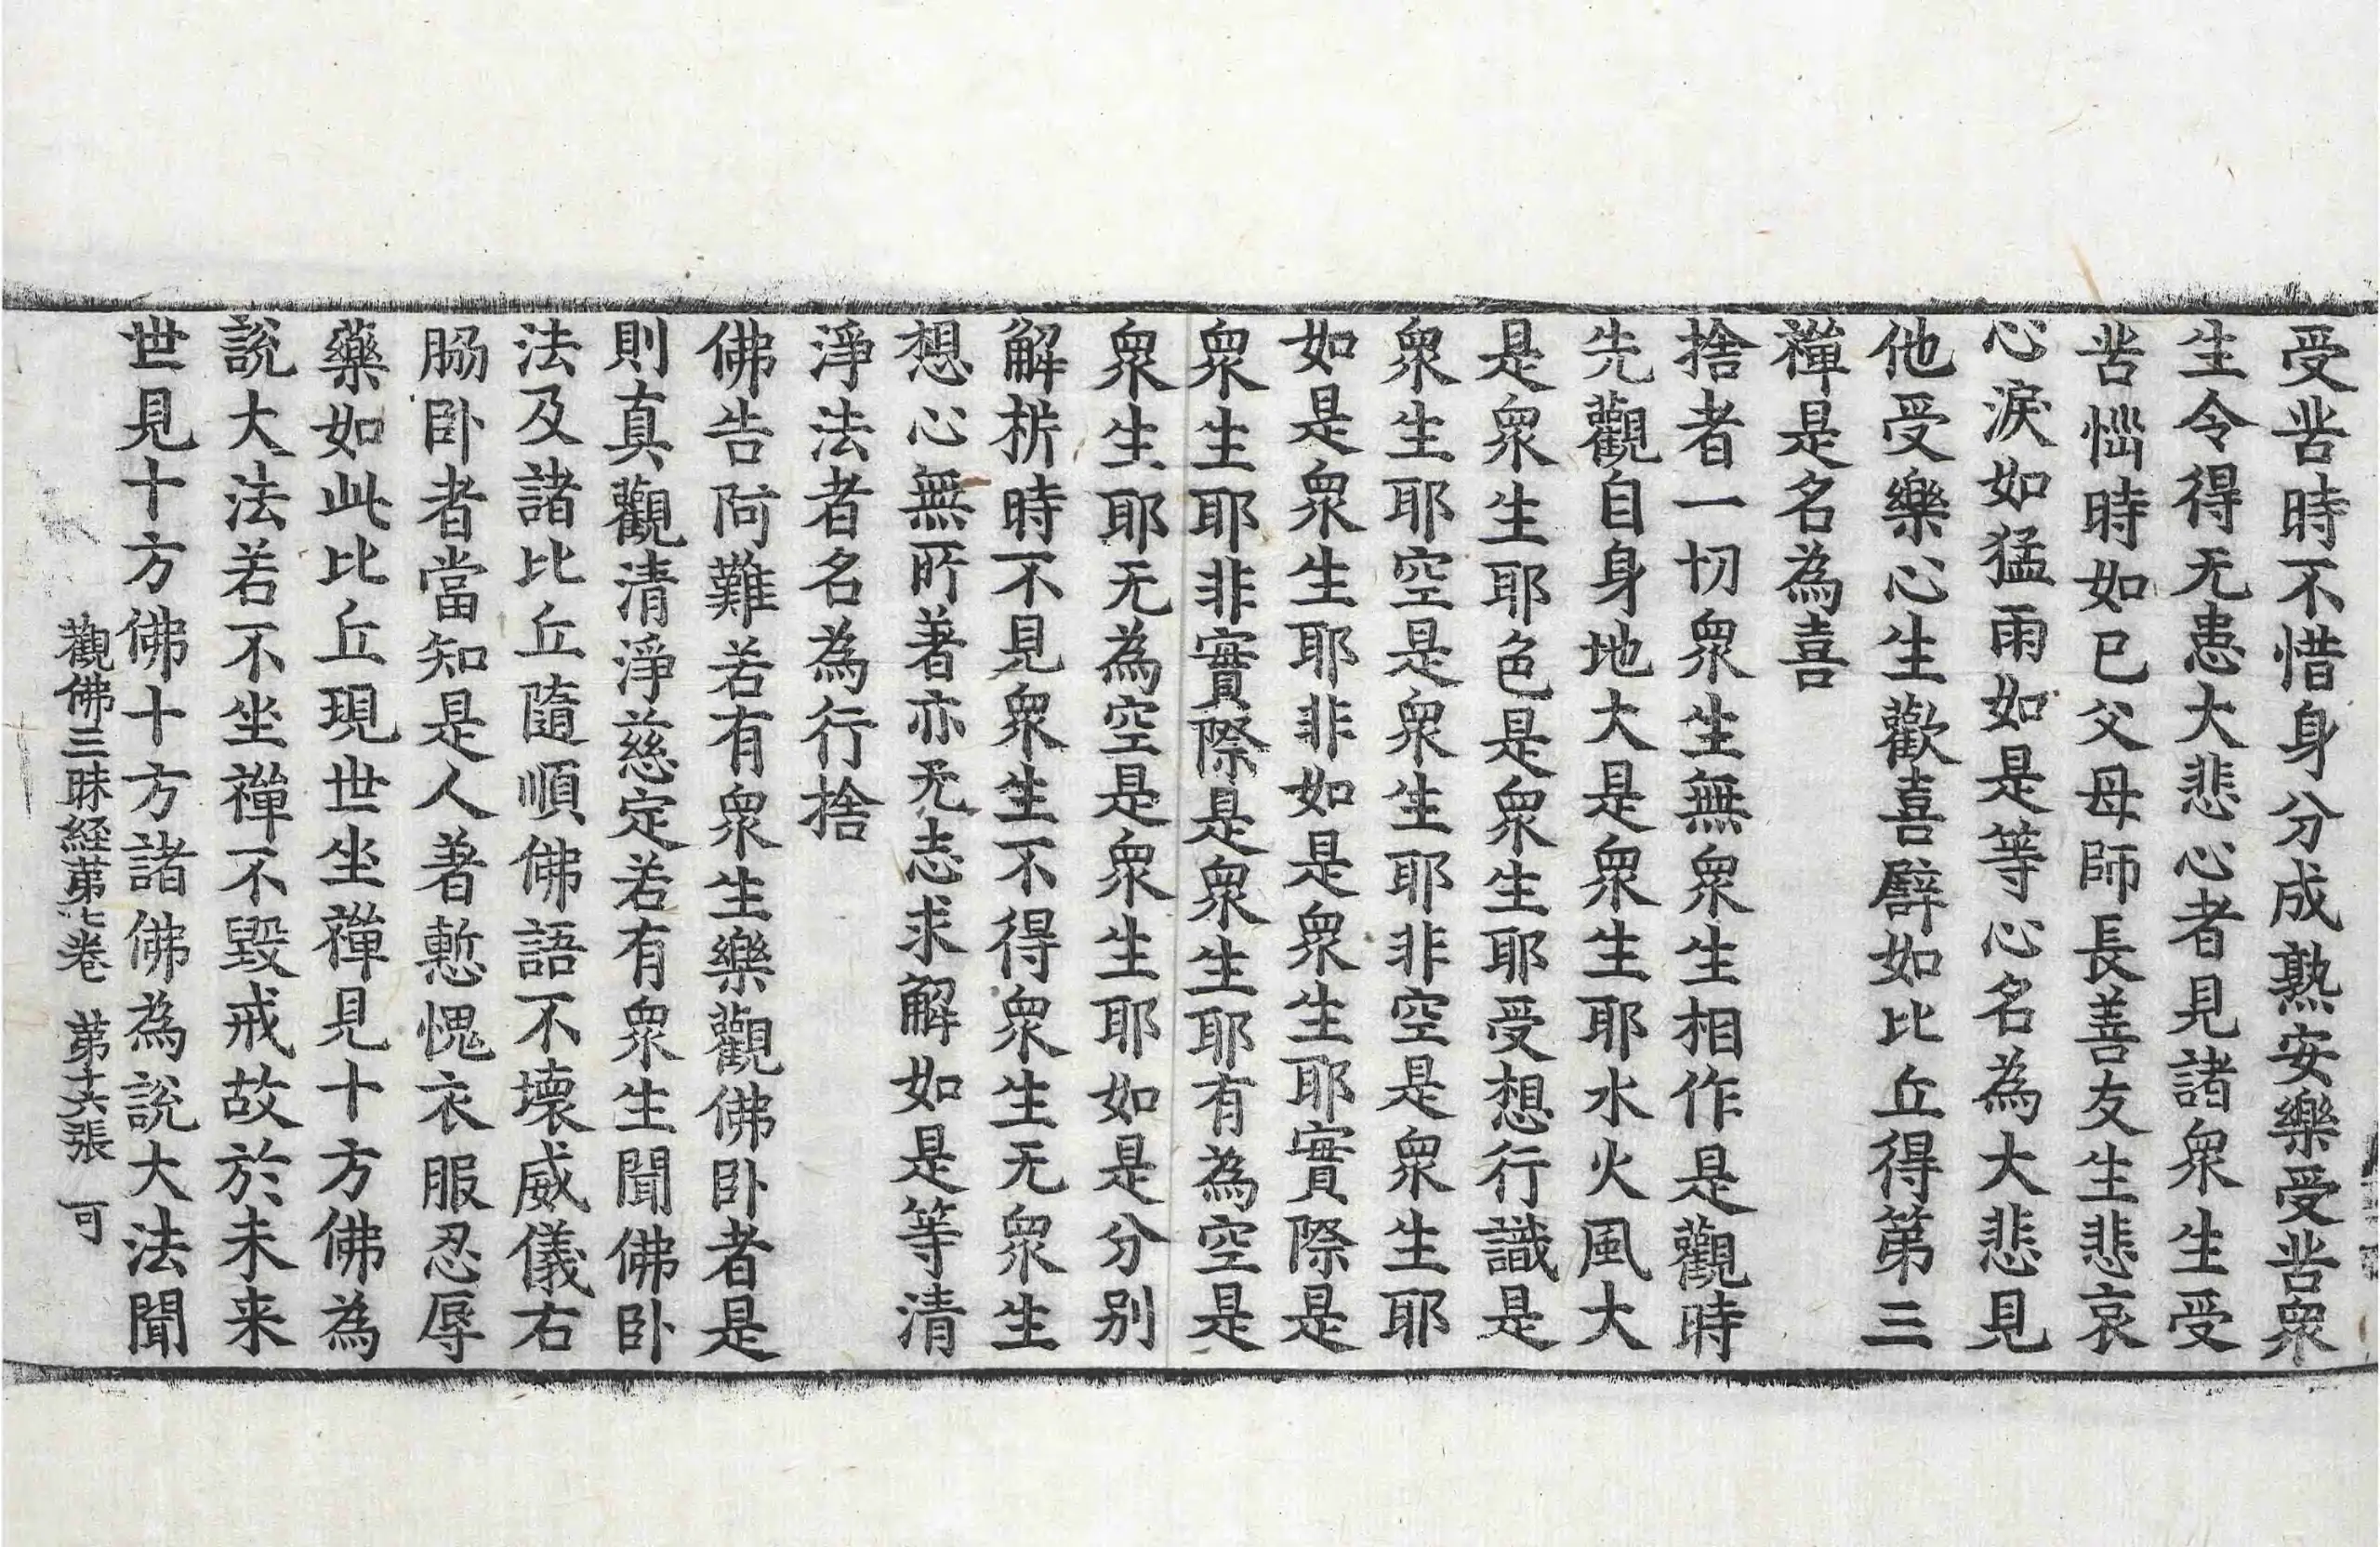 受苦時不惜身分成熟安樂受苦衆
生令得无患大悲心者見諸衆生受
苦惱時如已父母師長善友生悲哀
心淚如猛雨如是等心名為大悲見
他受樂心生歡喜譬如比丘得第三
禪是名為喜
捨者一切衆生無衆生相作是觀時
先觀自身地大是衆生耶水火風大
是衆生耶色是衆生耶受想行識是
衆生耶空是衆生耶非空是衆生耶
如是衆生耶非如是衆生耶實際是
衆生耶非實際是衆生耶有為空是
衆生耶无為空是衆生耶如是分別
解析時不見衆生不得衆生无衆生
想心無所著亦无志求解如是等清
淨法者名為行捨
佛告阿難若有衆生樂觀佛卧者是
則真觀清淨慈定若有衆生聞佛卧
法及諸比丘隨順佛語不壞威儀右
脇卧者當知是人著慙愧衣服忍辱
藥如此比丘現世坐禪見十方佛為
說大法若不坐禪不毀戒故於未来
世見十方佛十方諸佛為說大法聞
觀佛三昧経苐七卷 苐十六張 可